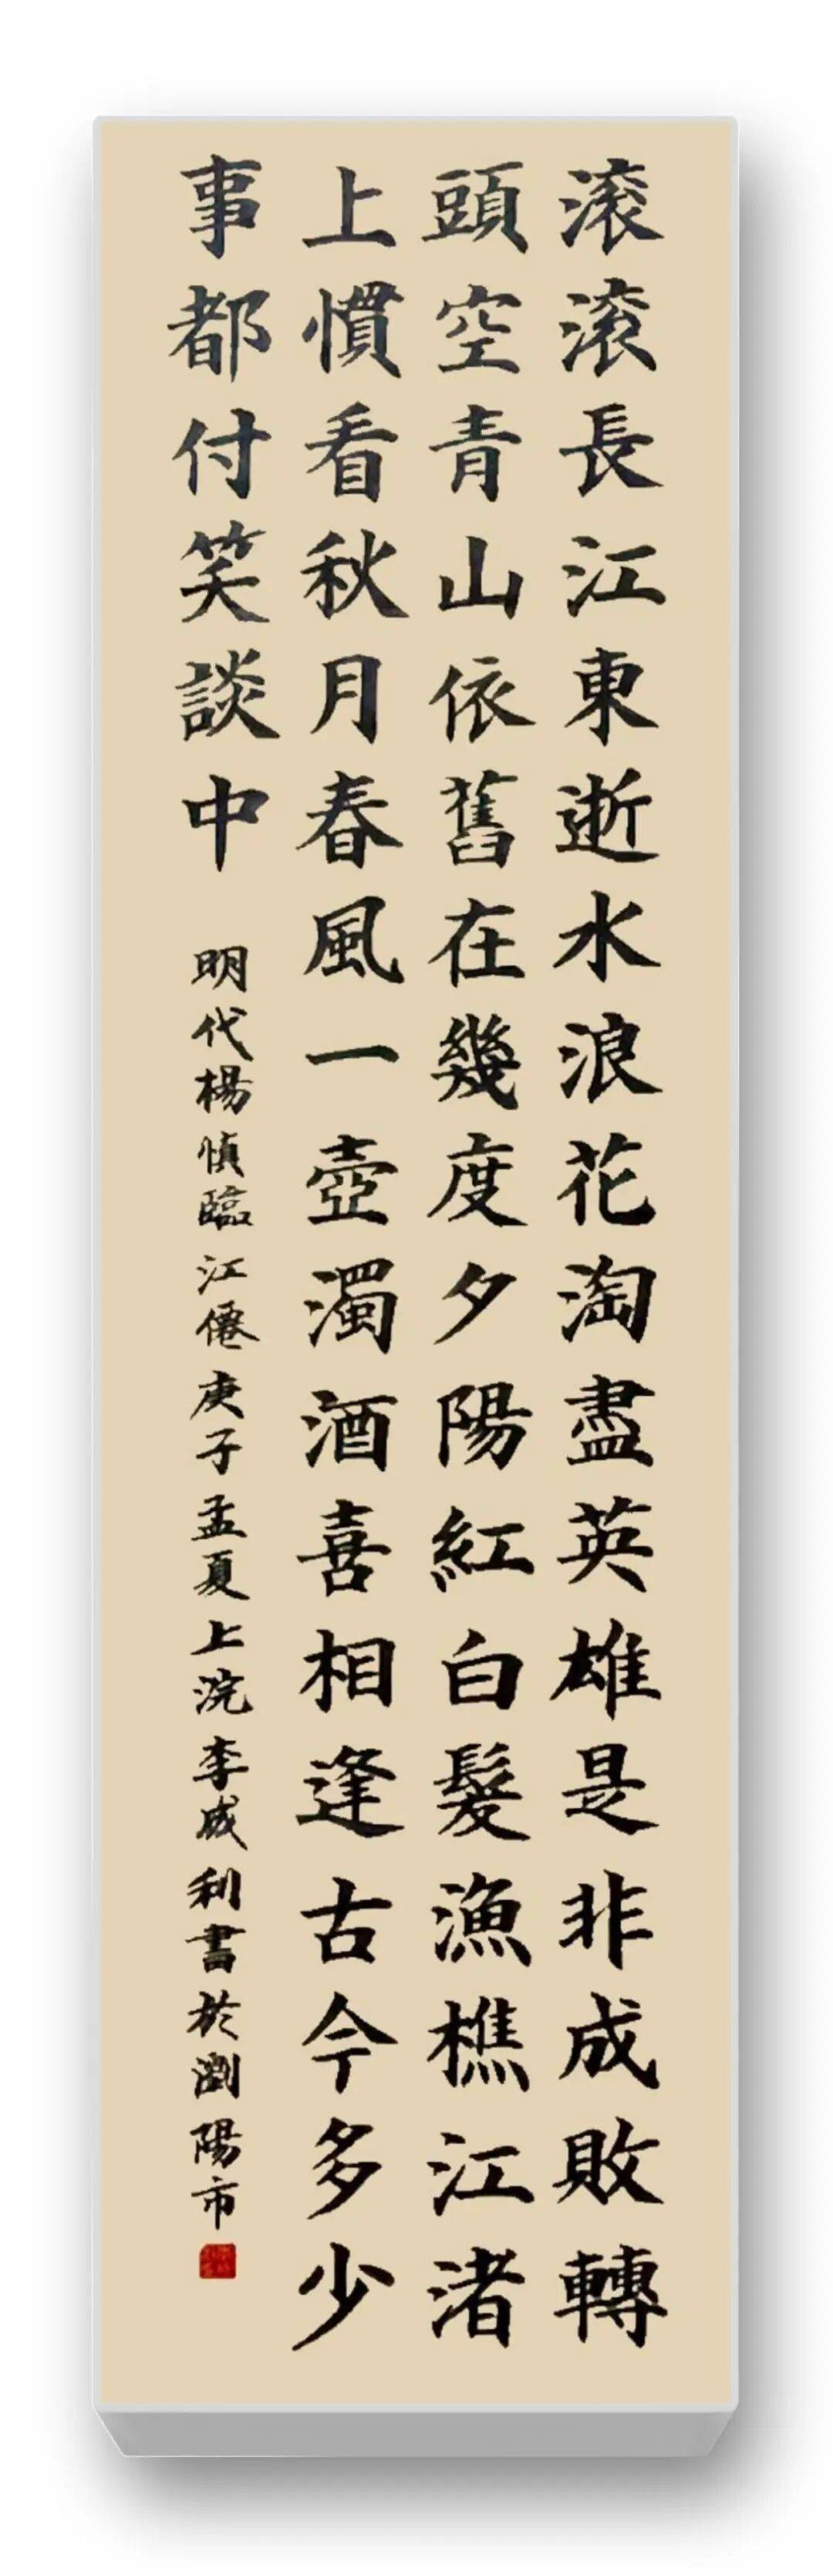 滚滚長江東逝水浪花淘盡英雄是非成敗轉
頭空青山依舊在幾度夕陽紅白髮漁樵江渚
上慣看秋月春風一壺濁酒喜相逢古今多少
事都付笑談中
明代楊慎臨江僊庚子孟夏上浣李成利書於瀏陽市